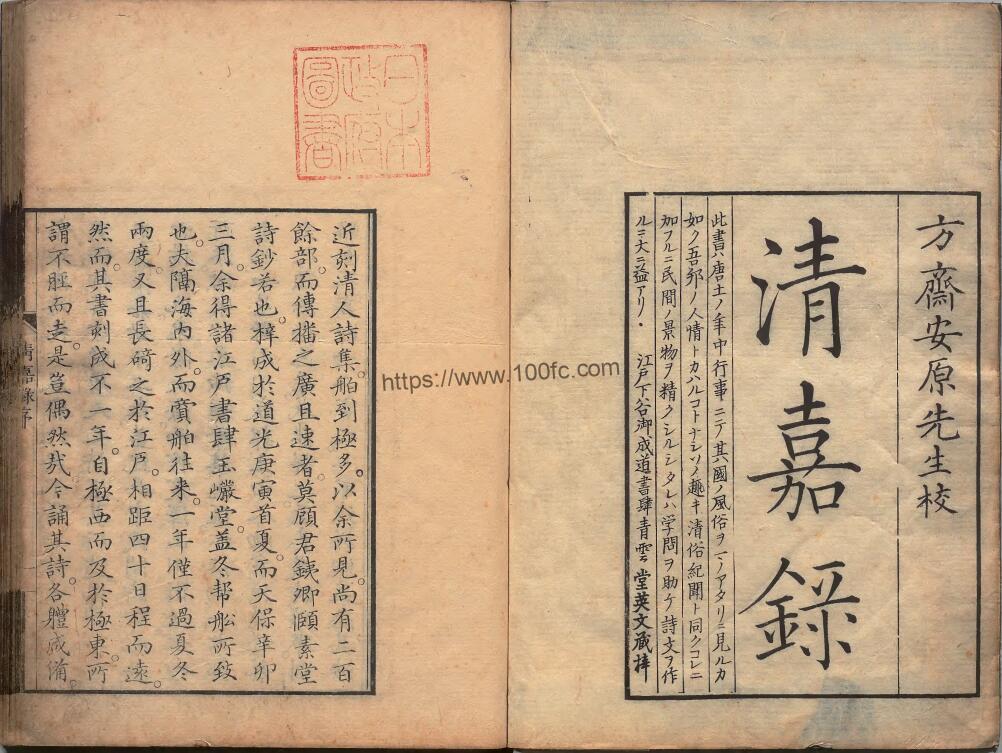 方齋安原先生校
清嘉録
此書ハ唐土ノ年中行事ニテ其國ノ風俗ヲマノアタリニ見ルカ
如ク吾邦ノ人情トカハルコトナシソノ趣キ清俗紀聞ト同クコレニ
加フルニ民間ノ景物ヲ精クシルシタレハ学問ヲ助ケ詩文ヲ作
ルニ大ニ益アリ・
江戸下谷御成道書肆青雲堂英文蔵梓
日本政府圖書
近刻清人詩集舶到極多。以余所見。尚有二百
餘部。而傳播之廣且速者。莫顧君鉄卿頤素堂
詩鈔若也。梓成於道光庚寅首夏。而天保辛卯
三月。余得諸江戸書肆玉巖堂。盖冬帮船所致
也。夫隔海内外。而賞舶往来。一年僅不過夏冬
兩度。又且長碕之於江戸。相距四十日程而遠。
然而其書刻成不一年。自極西而及於極東。所
謂不脛而走。是豈偶然哉。今誦其詩。各體咸備。
清嘉録序
https://www.100fc.com